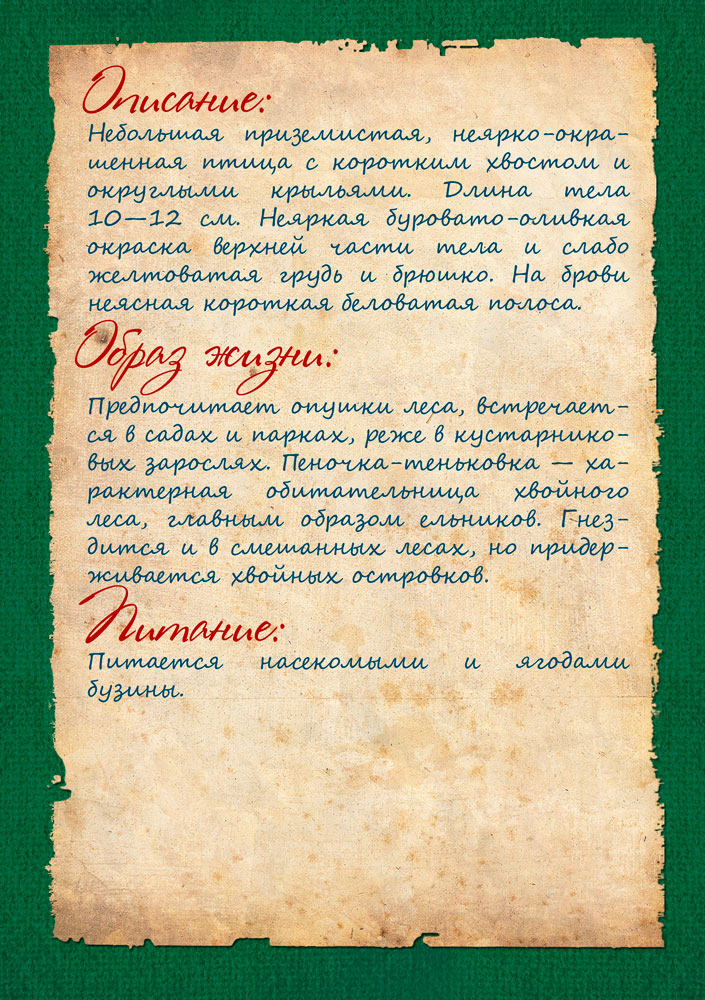 Описание:
Небольшая приземистая, неярко-окра-
шенная птица с коротким хвостом и
округлыми крыльями. Длина тела
10—12 см. Неяркая буровато-оливкая
окраска верхней части тела и слабо
желтоватая грудь и брюшко. На брови
неясная короткая беловатая полоса.
Образ жизни:
Предпочитает опушки леса, встречает-
ся в садах и парках, реже в кустарнико-
вых зарослях. Пеночка-теньковка — ха-
рактерная обитательница хвойного
леса, главным образом ельников. Гнез-
дится и в смешанных лесах, но придер-
живается хвойных островков.
Питание:
Питается насекомыми и ягодами
бузины.